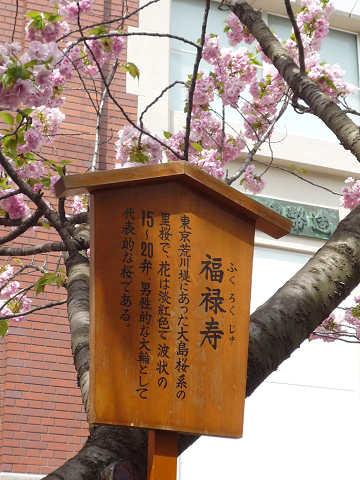 福禄寿
ふくろくじゅ
東京荒川堤にあった大島桜系の
里桜で、花は淡紅色で波状の
15~20弁、男性的な大輪として
代表的な桜である。